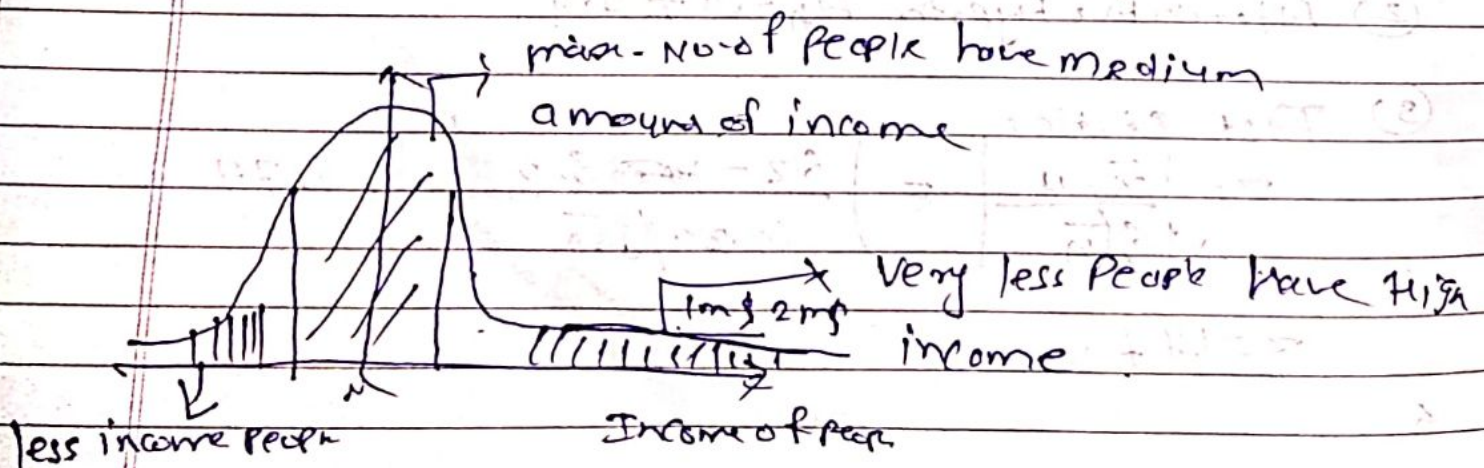 max. No. of people have medium
amount of income
Very less People Have High
1m$ 2m$
income
less income people
Income of